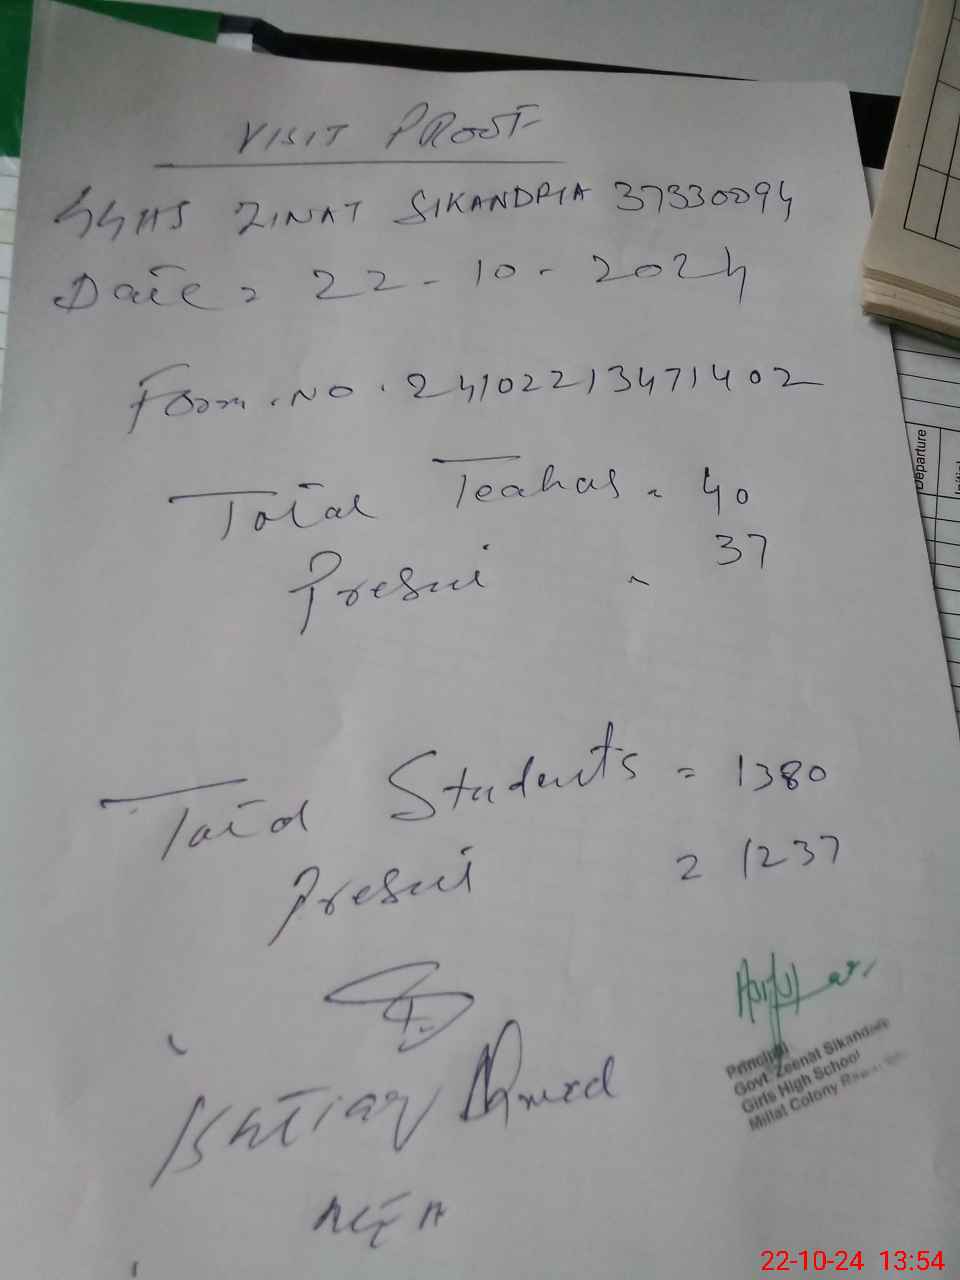 VISIT PROOF
GGHS ZINAT SIKANDRIA 37330094
Date = 22-10-2024
Form.No. 24102213471402
Total Teahas = 40
Present = 37
Total Students = 1380
Present = 1237
Ishtiaq Ahmed
AEA
Principal
Govt. Zeenat Sikandaria
Girls High School
Millat Colony
Departure
Initial
22-10-24 13:54